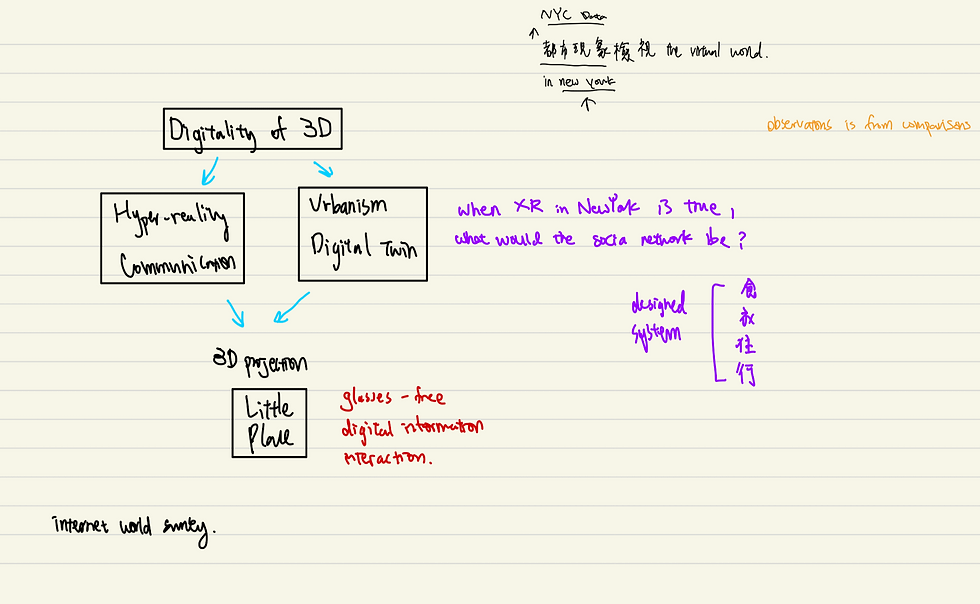 NYC Data
都市現象檢視 the virtual world.
in new york
observations is from comparisons
Digitality of 3D
Hyper-reality
Communication
Urbanism
Digital Twin
when XR in NewYork is true,
what would the socia network be?
designed
system
食
衣
住
行
3D projection
Little
Place
glasses-free
digital information
interaction.
internet world survey.